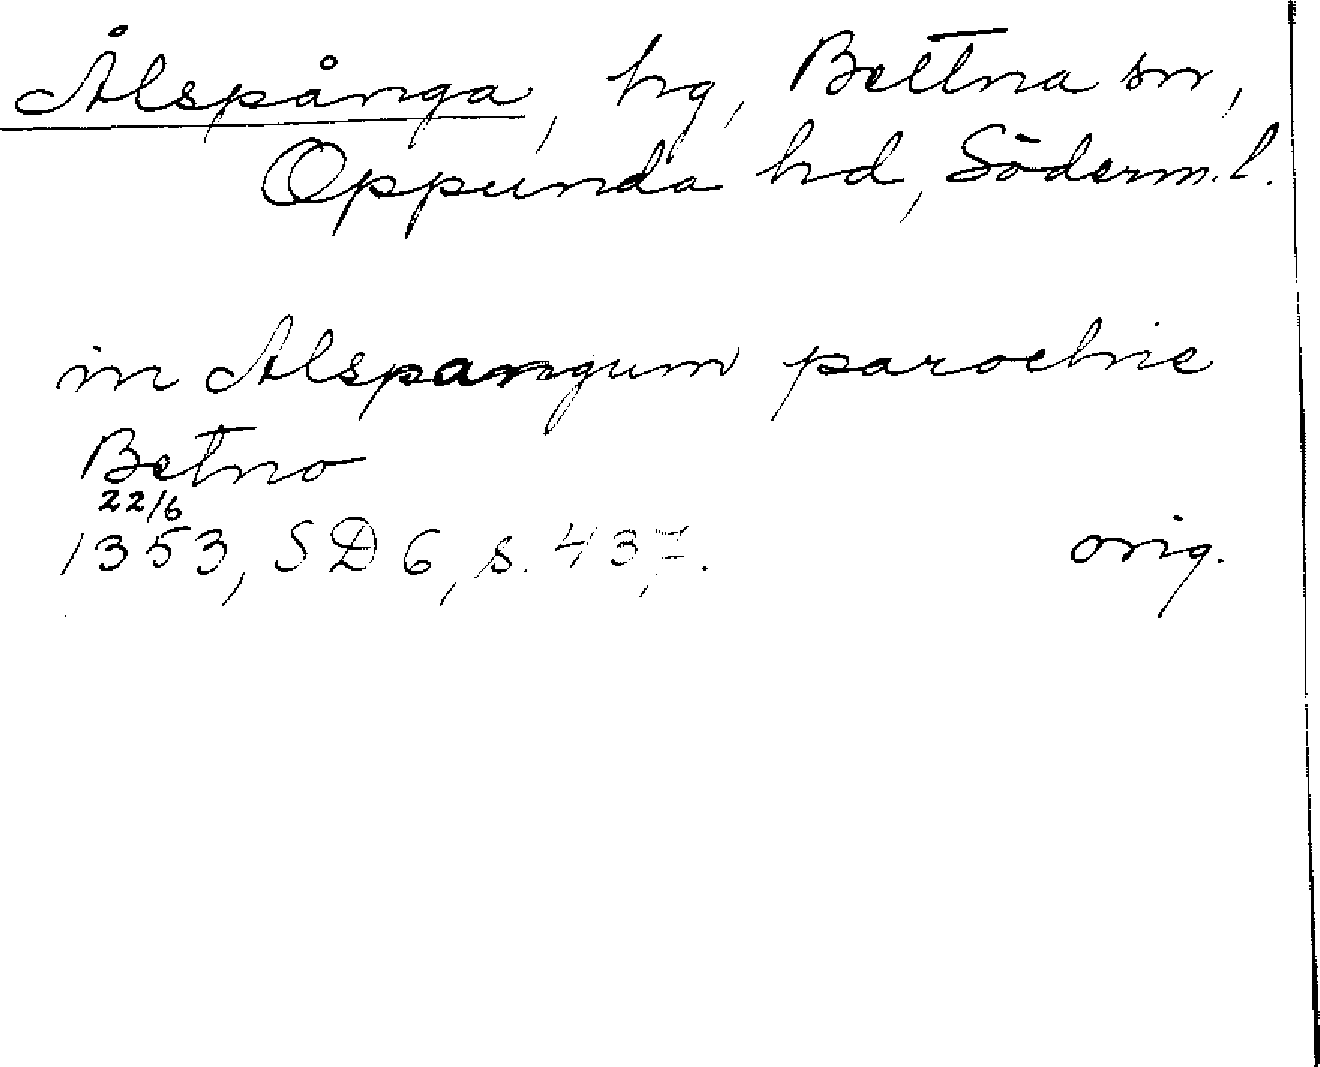 Ålspånga, hg, Bettna sn,
Oppunda hd, Söderm. l.
in Alspangum parochie
Betno
22/6
1353, SD 6, s. 437. orig.